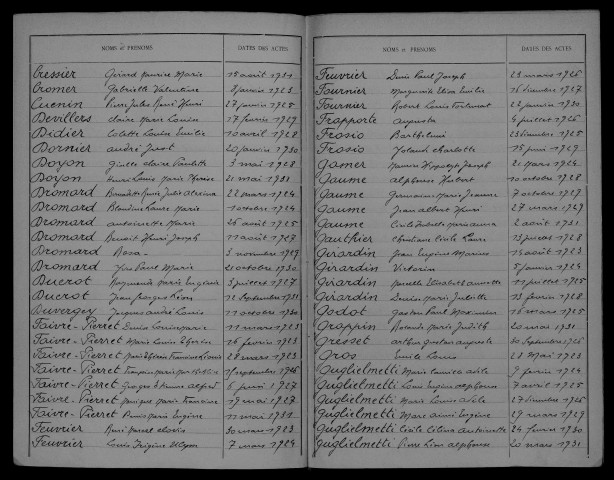 NOMS et PRÉNOMS DATES DES ACTES
Cressier Girard Maurice Marie 15 août 1931
Cromer Gabrielle Valentine 8 janvier 1923
Cuenin Pierre Jules René Henri 27 janvier 1925
Devillers Claire Marie Louise 17 février 1929
Didier Colette Louise Emilie 10 avril 1928
Dornier André 20 janvier 1930
Doyon Ginette Claire Paulette 3 mai 1928
Doyon Louis Marie 21 mai 1931
Dromard Bernadette Marie Julie 22 mars 1924
Dromard Blandine Laure Marie 10 octobre 1924
Dromard Antoinette Marie 26 août 1925
Dromard Benoit Henri Joseph 11 août 1927
Dromard Rosa 3 novembre 1929
Dromard Yves Paul Marie 21 octobre 1930
Ducrot Raymonde Marie 3 juillet 1927
Ducrot Jean Georges Léon 12 septembre 1931
Duvergey Jacques André Louis 11 octobre 1930
Faivre-Pierret Denis Louis Marie 11 mars 1923
Faivre-Pierret Marie Louise 16 février 1923
Faivre-Pierret 28 mars 1923
Faivre-Pierret septembre 1926
Faivre-Pierret Georges Alfred 6 juin 1927
Faivre-Pierret Monique Marie Francoise 19 mai 1927
Faivre-Pierret Marie Eugène 11 mai 1931
Feuvrier René Marcel Clovis 30 mars 1923
Feuvrier Louis Ulysse 7 mars 1924
NOMS et PRÉNOMS DATES DES ACTES
Feuvrier Denis Paul Joseph 23 mars 1926
Fournier Marguerite Elisa Emilie 16 décembre 1927
Fournier Robert Louis 22 janvier 1930
Frapporte Augusta 4 juillet 1926
Frosio Barthélemi 23 décembre 1925
Frosio Yoland Charlotte 15 juin 1929
Gamer Maurice Hippolyte Joseph 21 mars 1924
Gaume Alphonse Hubert 10 octobre 1928
Gaume Germaine Marie Jeanne 7 octobre 1927
Gaume Jean Albert Henri 27 mars 1929
Gaume Cécile 2 août 1931
Gauthier Christiane Cécile Laure 13 janvier 1928
Girardin Jean Eugène Marius 14 août 1923
Girardin Victorin 5 janvier 1924
Girardin Marcelle Elisabeth 11 juillet 1925
Girardin Denise Marie Juliette 13 février 1928
Godot Gaston Paul 16 mars 1925
Grappin Rolande Marie Judith 20 mai 1931
Gresset Arthur Gustave Auguste 30 septembre 1926
Gros Emile Louis 22 mai 1923
Guglielmetti Marie Camille Adèle 9 février 1924
Guglielmetti Louis Eugène Alphonse 7 avril 1925
Guglielmetti Marie Louise Adèle 27 décembre 1926
Guglielmetti Marc Aimé Eugène 29 mars 1929
Guglielmetti Cécile Célina Antoinette 24 février 1930
Guglielmetti Pierre Léon Alphonse 20 mars 1931